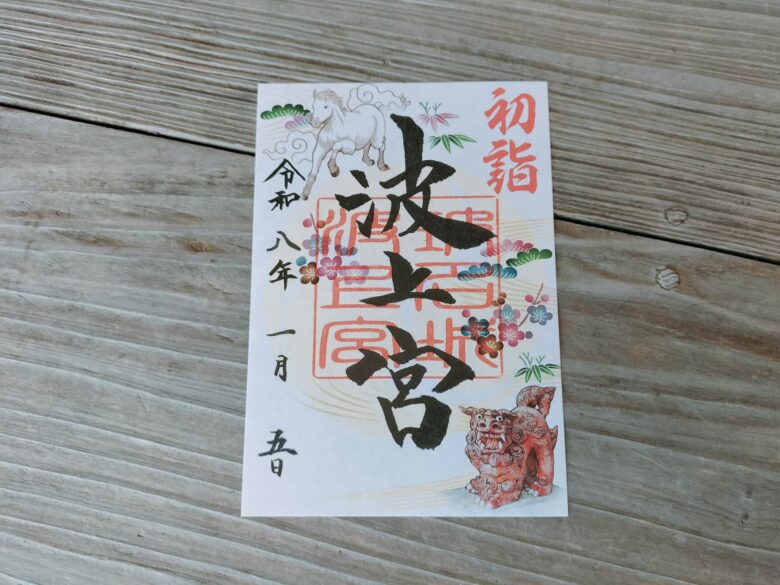 初詣
波上宮
令和八年一月五日